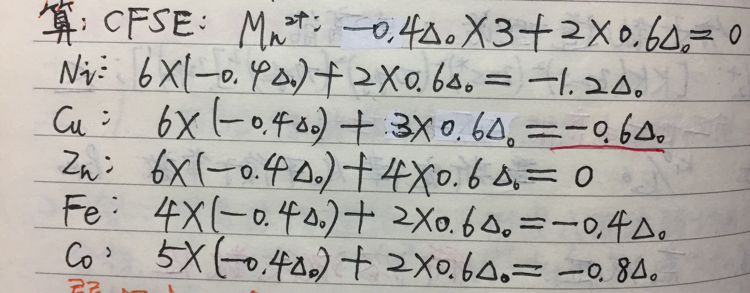 算: CFSE: Mn²⁺: -0.4Δ₀×3+2×0.6Δ₀=0
Ni: 6×(-0.4Δ₀)+2×0.6Δ₀=-1.2Δ₀
Cu: 6×(-0.4Δ₀)+3×0.6Δ₀=-0.6Δ₀
Zn: 6×(-0.4Δ₀)+4×0.6Δ₀=0
Fe: 4×(-0.4Δ₀)+2×0.6Δ₀=-0.4Δ₀
Co: 5×(-0.4Δ₀)+2×0.6Δ₀=-0.8Δ₀